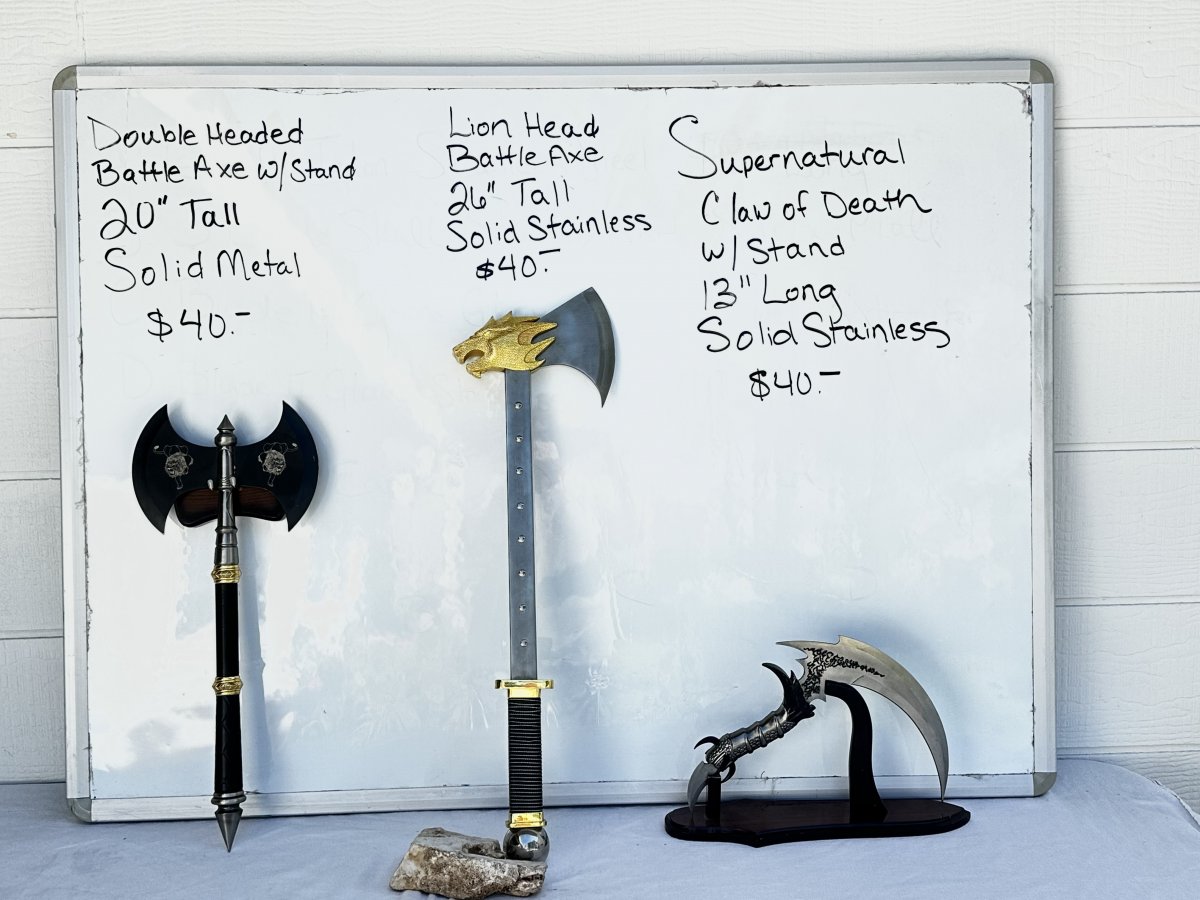 Double Headed
Battle Axe w/Stand
20" Tall
Solid Metal
$40.-
Lion Head
Battle Axe
26" Tall
Solid Stainless
$40.-
Supernatural
Claw of Death
w/Stand
13" Long
Solid Stainless
$40.-